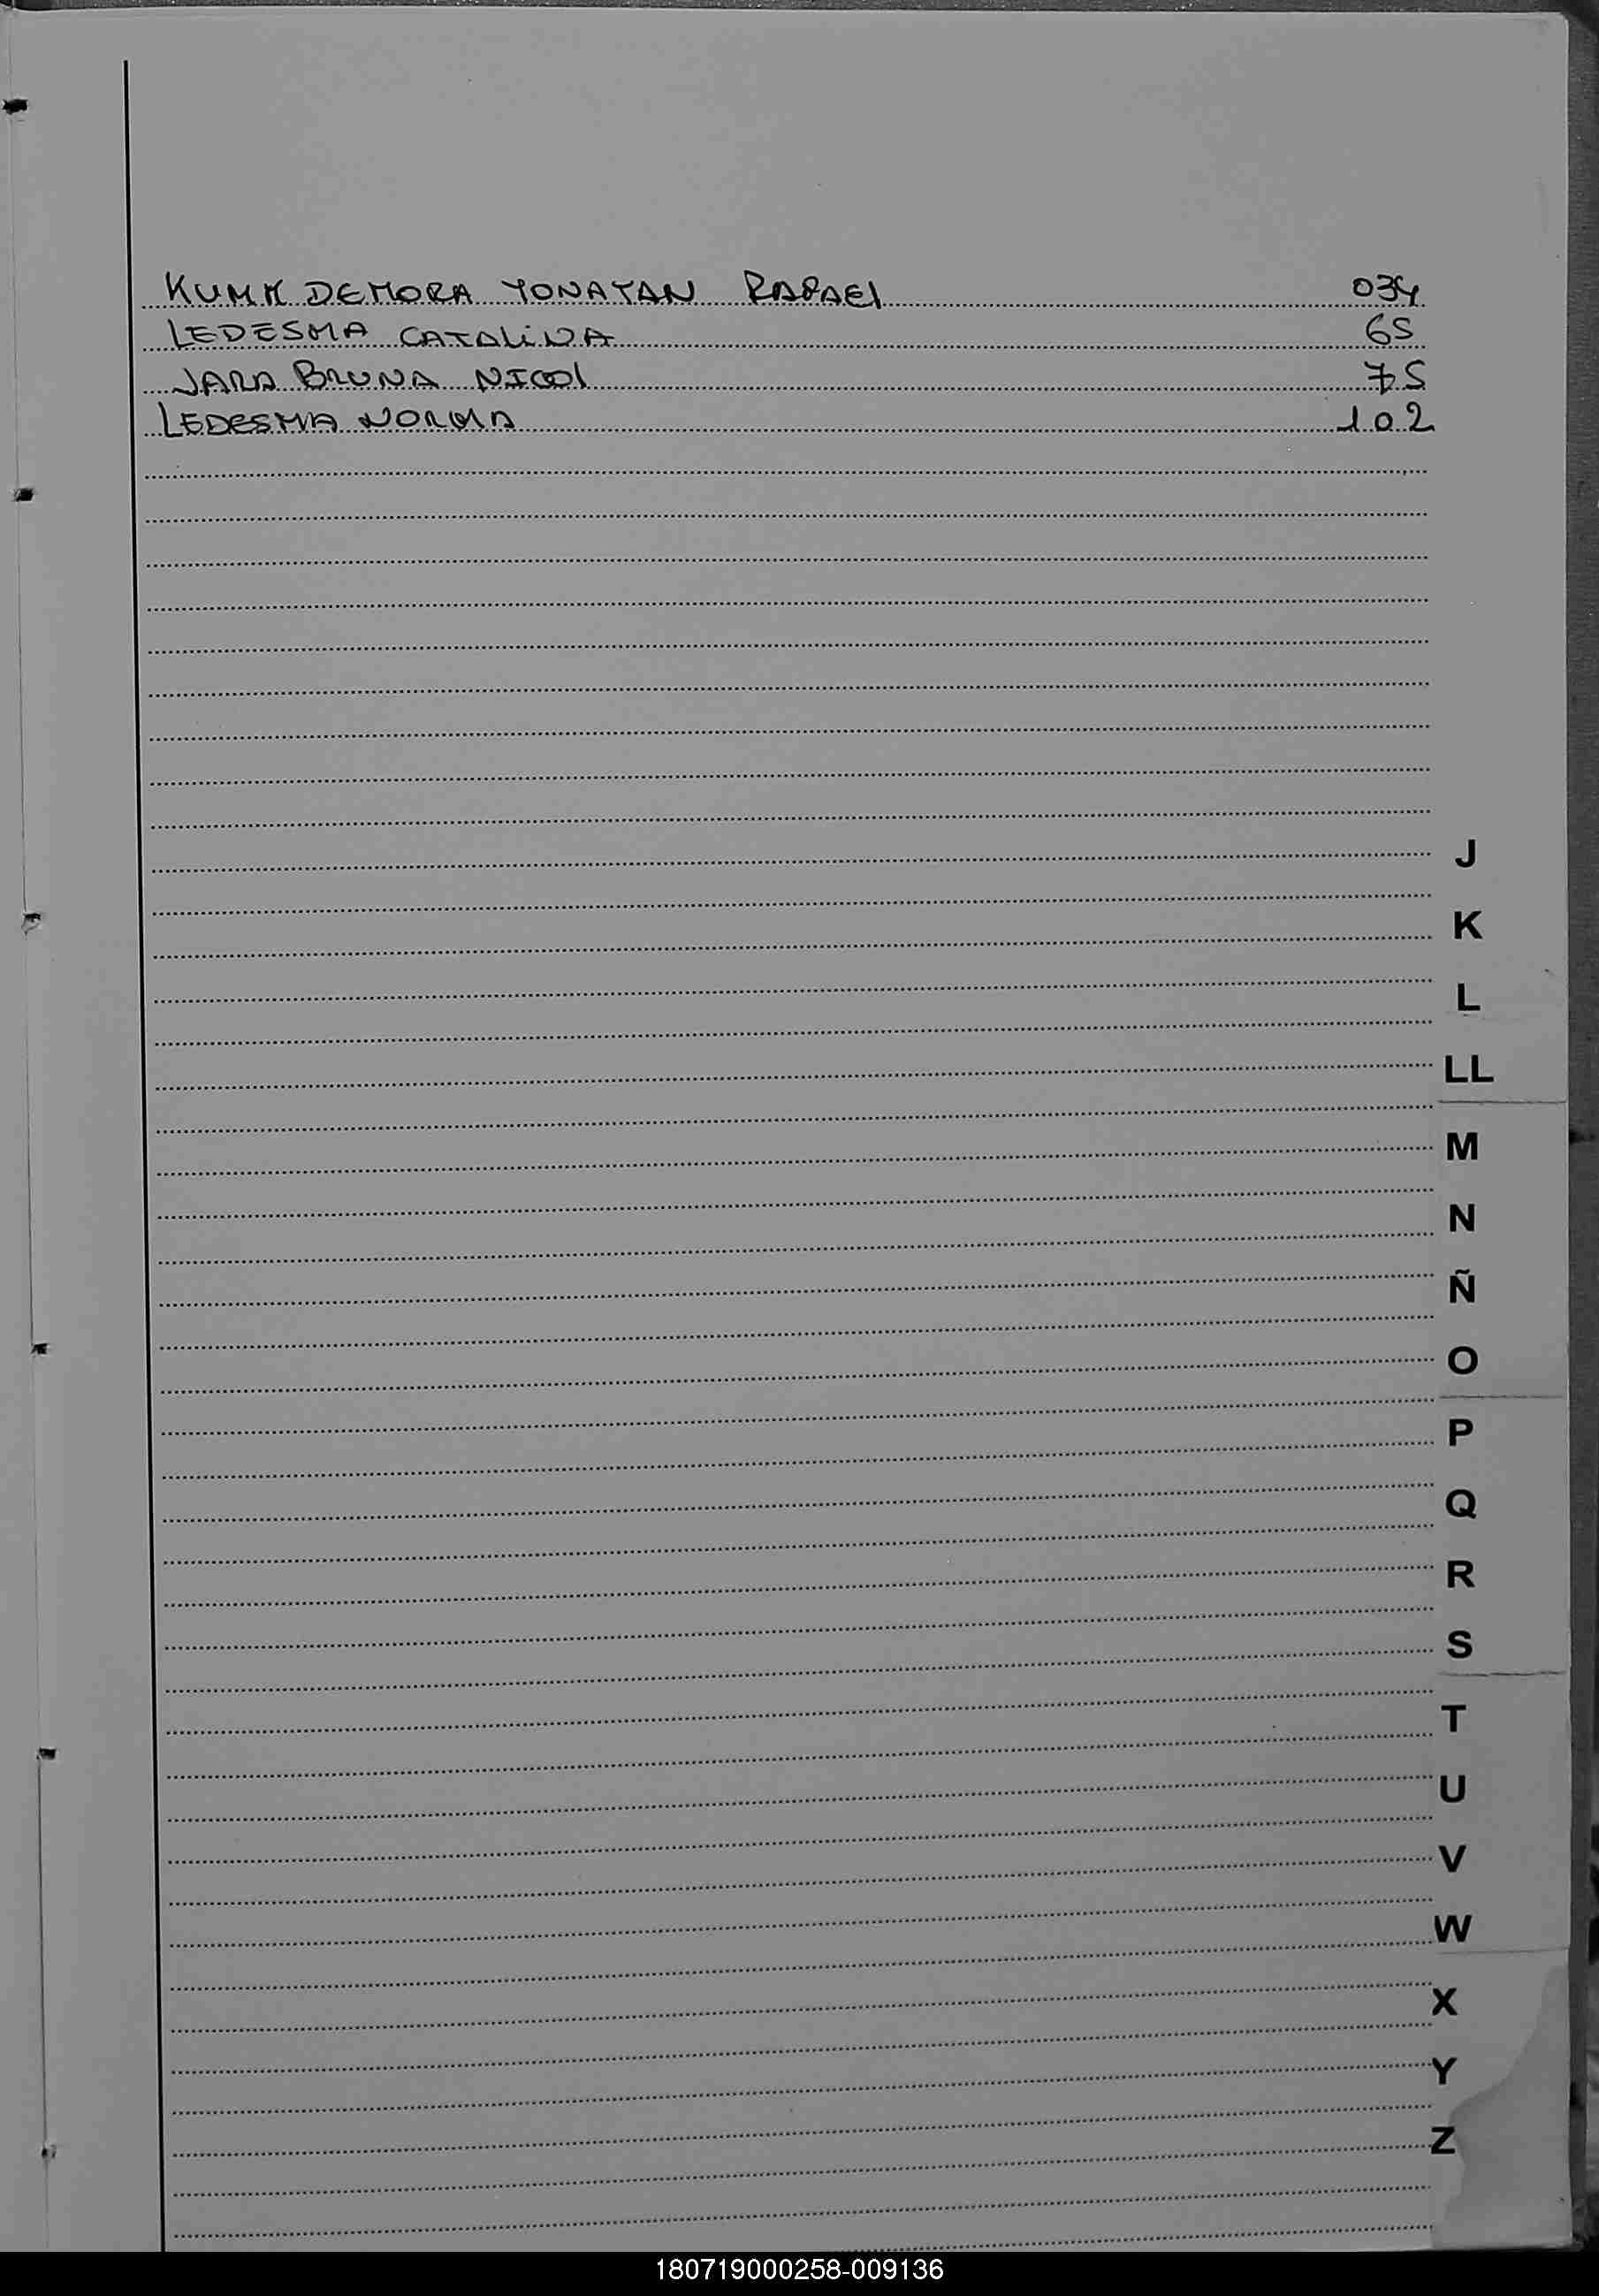 KUMK DEMORA YONATAN RAFAEl 034
LEDESMA CATALiNA 65
JARA BRUNA NICOl 75
LEDESMA NORMA 102
J
K
L
LL
M
N
Ñ
O
P
Q
R
S
T
U
V
W
X
Y
Z
180719000258-009136